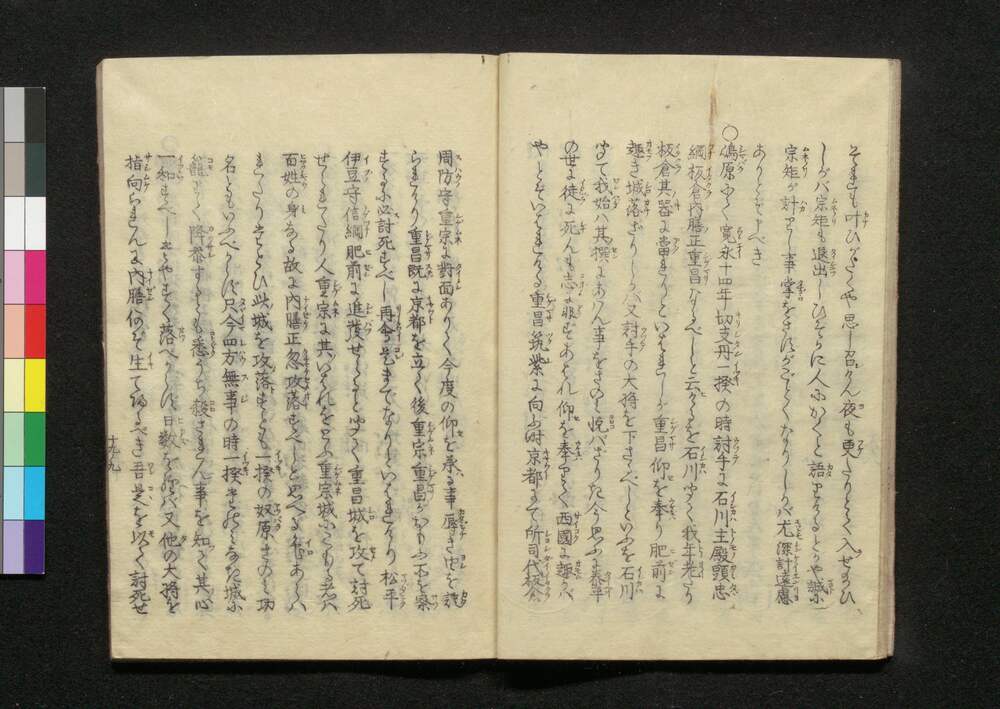 それも叶ひがたくや思し召けん夜も更たりとく入せ給ひ
しかバ宗矩も退出しひそかに人にかくと語りけるとかや誠に
宗矩が計りし事掌をさすがごとくなりしかバ尤深計遠慮
ありといふべき
○嶋原にて寛永十四年切支丹一揆の時討手に石川主殿頭忠
綱板倉内膳正重昌なるべしと云けるを石川聞て我年老たり
板倉其器に當れりといはれしが重昌仰を奉り肥前に
趣き城落ざりしかバ又討手の大将を下さるべしといふを石川
聞て我始ハ其撰にあはん事をさのミ悦バざりき今思ふに泰平
の世に徒に死んも志に非ずあはれ仰を奉りて西國に趣かバ
やとぞいはれける重昌筑紫に向ふ時京都にて所司代板倉
周防守重宗に對面ありて今度の仰を承る事厚き由を談
らまけり重昌既に京都を立て後重宗重昌がおもふ所を察
するに必討死すべし再會是までなりといはれけり松平
伊豆守信綱肥前に進發せらると聞て重昌城を攻て討死
せられたり人重宗に其いはれをとふ重宗城にこもる者ハ
百姓の身なる故に内膳正忽攻落すべしと思へる色あらハ
れたりたとひ此城を攻落すとも一揆の奴原さのミ功
名ともいふべからず只今四方無事の時一揆
籠りて降参すとも悉うち殺されん事を知て其心
一和すべしたやすく落べからず日数を経バ又他の大将を
指向られんに内膳何ぞ生て帰るべき吾是を以て討死せ
十九